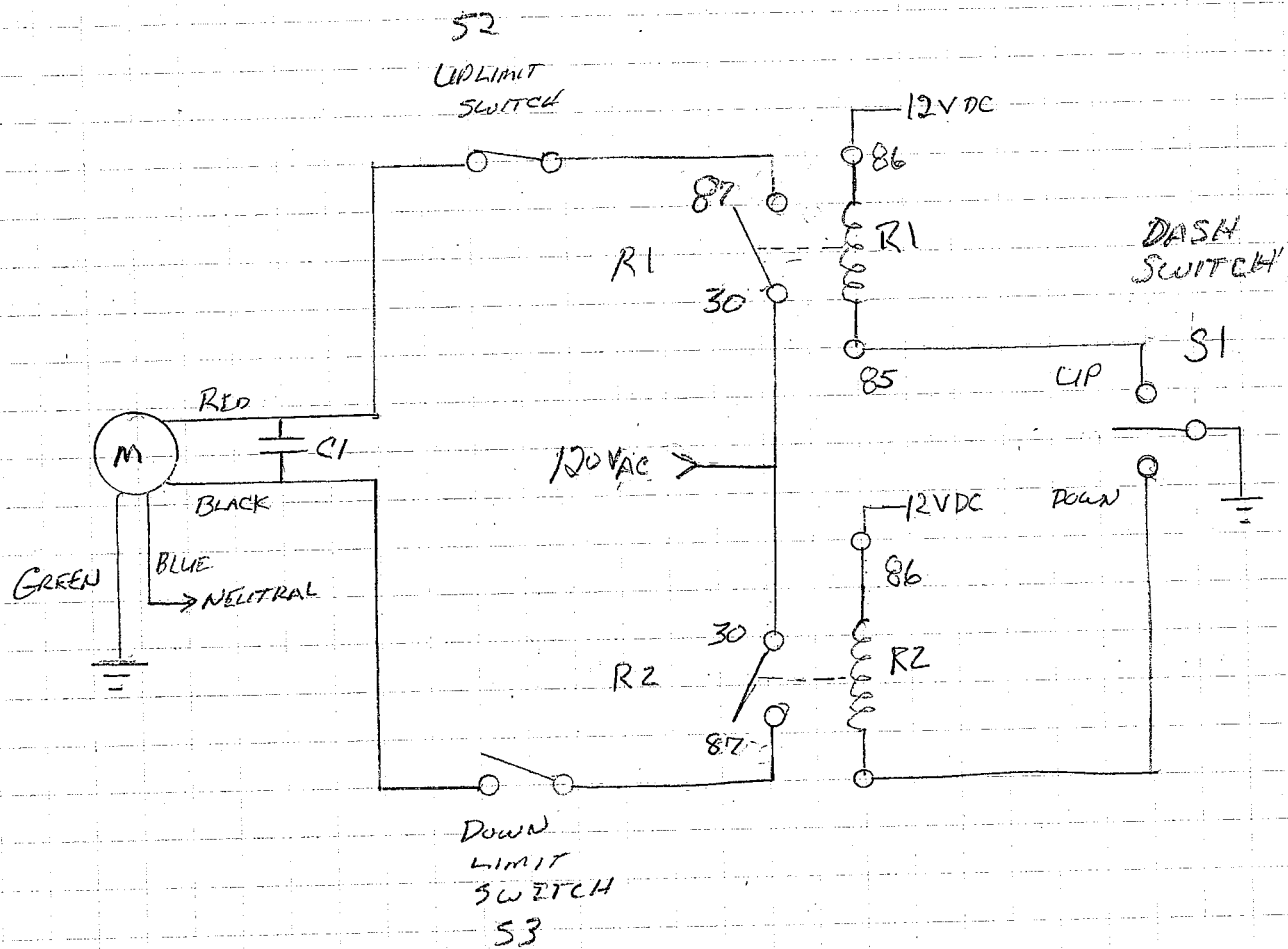 S2
UP LIMIT
SWITCH
12VDC
86
87
R1
R1
DASH
SWITCH
30
85
UP
S1
RED
M
C1
120VAC
BLACK
12VDC
DOWN
GREEN
BLUE
NEUTRAL
86
30
R2
R2
87
DOWN
LIMIT
SWITCH
S3